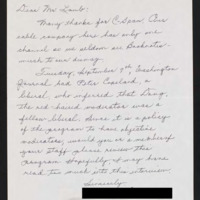 Dear Mr. Lamb:
Many thanks for C-Span. Our
cable company here has only one
channel so we seldom see Booknotes
much to our dismay.
Tuesday, September 7th, Washington
Journal had Peter Copeland, a
liberal, who inferred that Lucy,
the red haired moderator was a
fellow liberal. Since it is a policy
of the program to have objective
moderators, would you or a member of
your staff please review this
program. Hopefully, it may have
read too much into this interview.
Sincerely